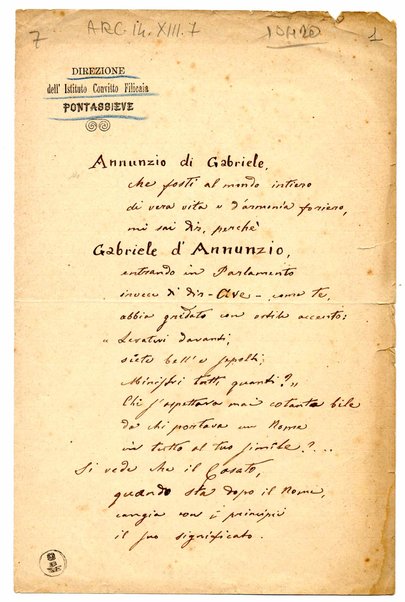 7
ARC. ih. XIII. 7
1
DIREZIONE
dell' Istituto Convitto Filicaia
PONTASSIEVE
Annunzio di Gabriele,
che fosti al mondo intiero
di vera vita e d'armonia foriero,
mi sai dir, perchè
Gabriele d'Annunzio,
entrando in Parlamento
invece di dir - Ave - come te,
abbia gridato con ostile accento:
" Levatevi davanti,
siete bell'e sepolti,
Ministri tutti quanti? "
Chi s'aspettava mai cotanta bile
da chi portava un Nome
in tutto al tuo simile?...
Si vede che il Casato,
quando sta dopo il Nome,
cangia con i principii
il suo significato.